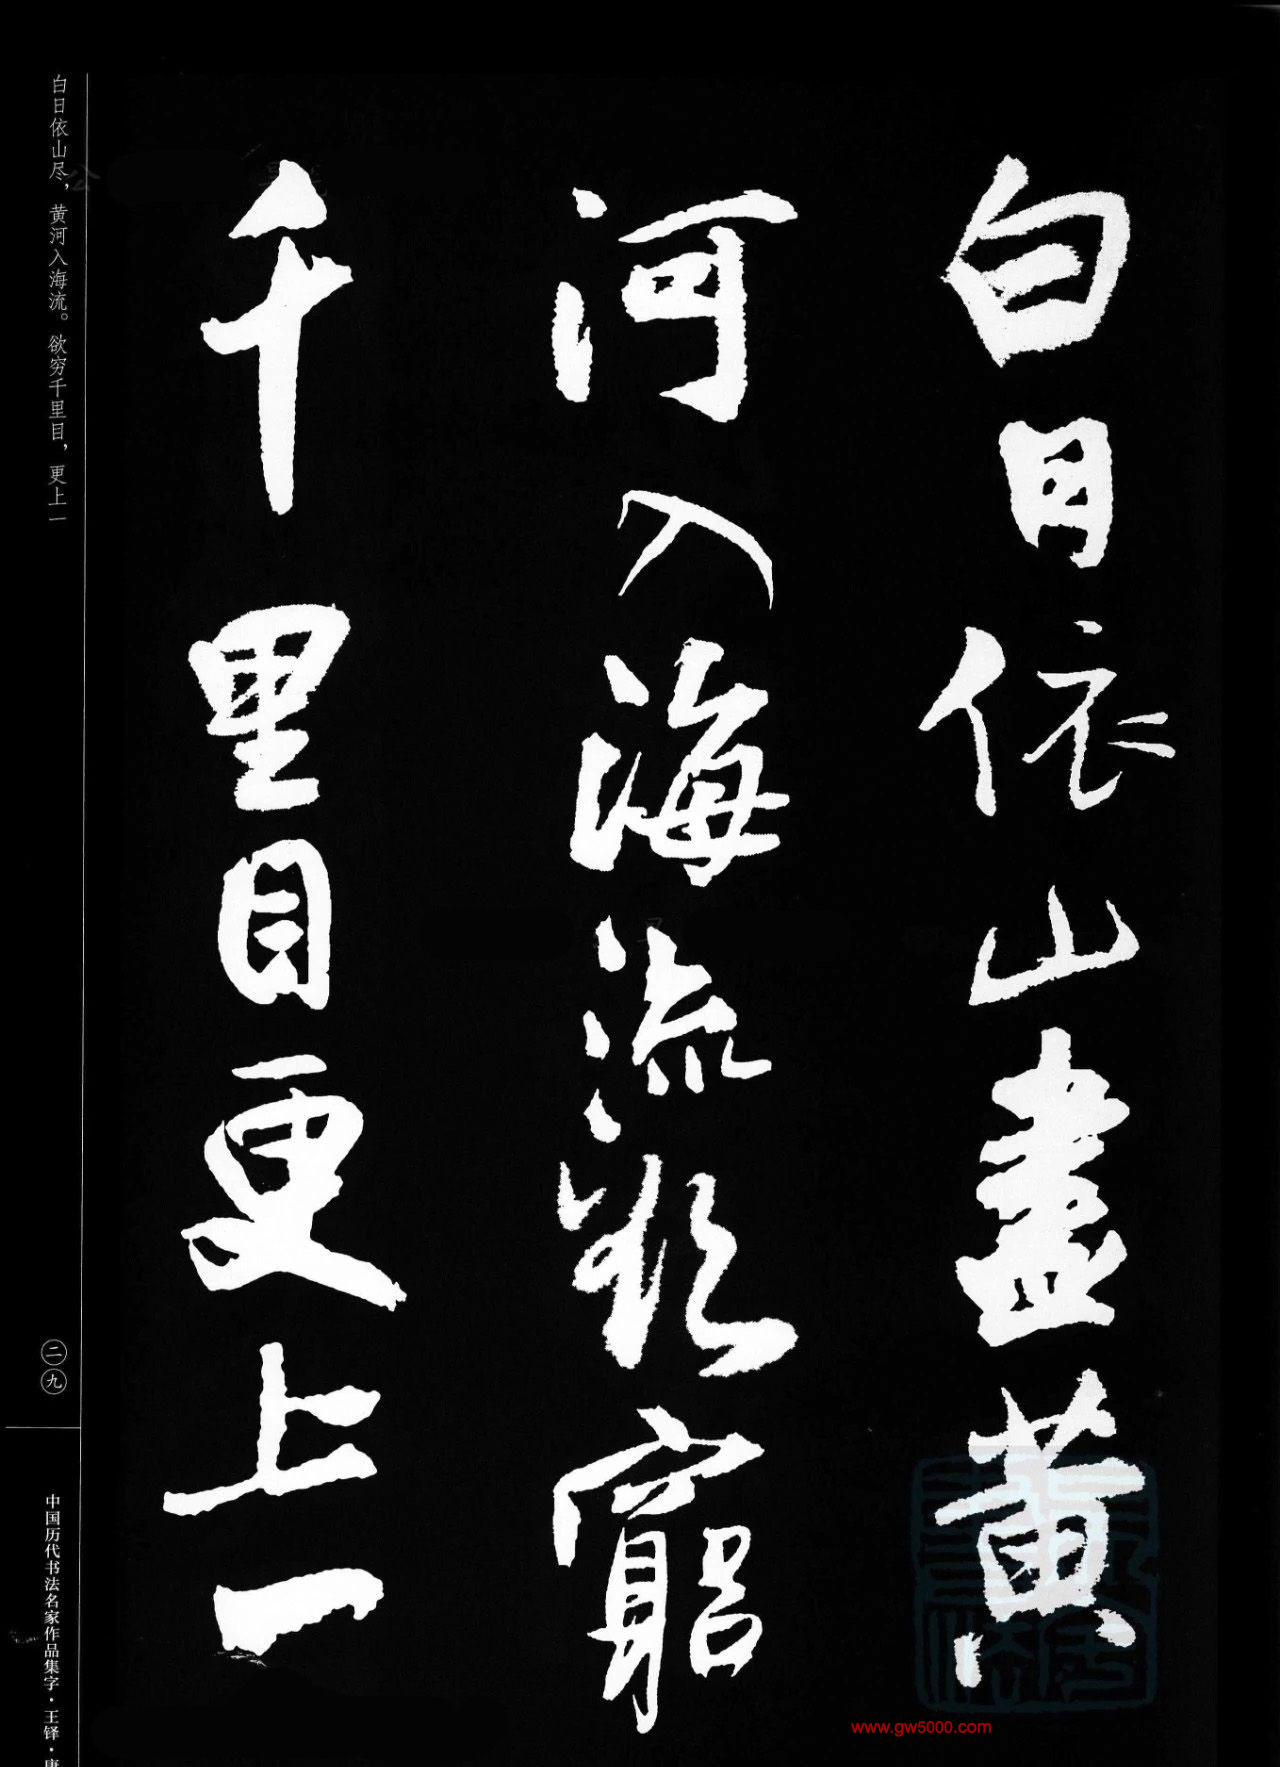 白日依山盡黄
河入海流欲窮
千里目更上一
白日依山尽，黄河入海流。欲穷千里目，更上一
二九
中国历代书法名家作品集字·王铎·唐
www.gw5000.com